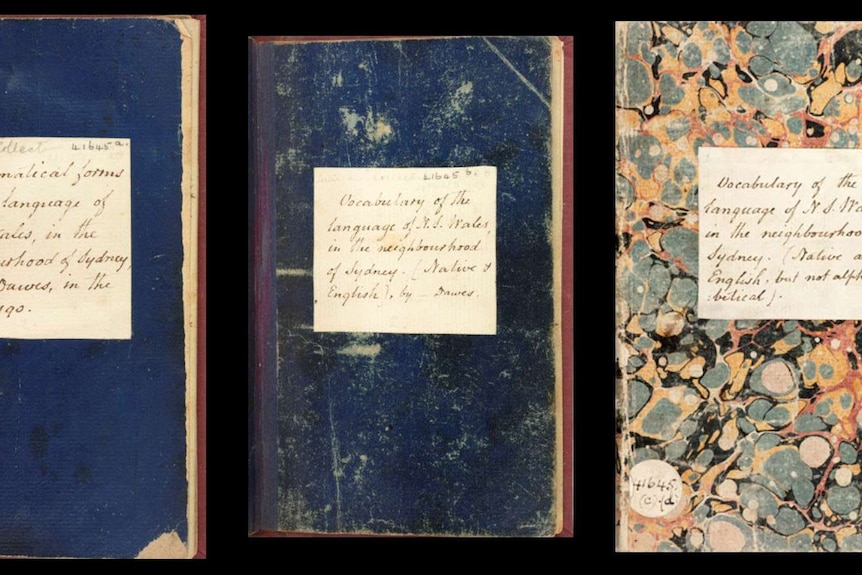 ollect 41645 a.
matical forms
language of
ales, in the
urhood of Sydney,
Dawes, in the
790.
41645 b.
Vocabulary of the
language of N.S. Wales,
in the neighbourhood
of Sydney. (Native &
English), by — Dawes.
Vocabulary of the
language of N S. Wa
in the neighbourhoo
Sydney. (Native a
English, but not alph
:betical).
41645.
(c) (d)